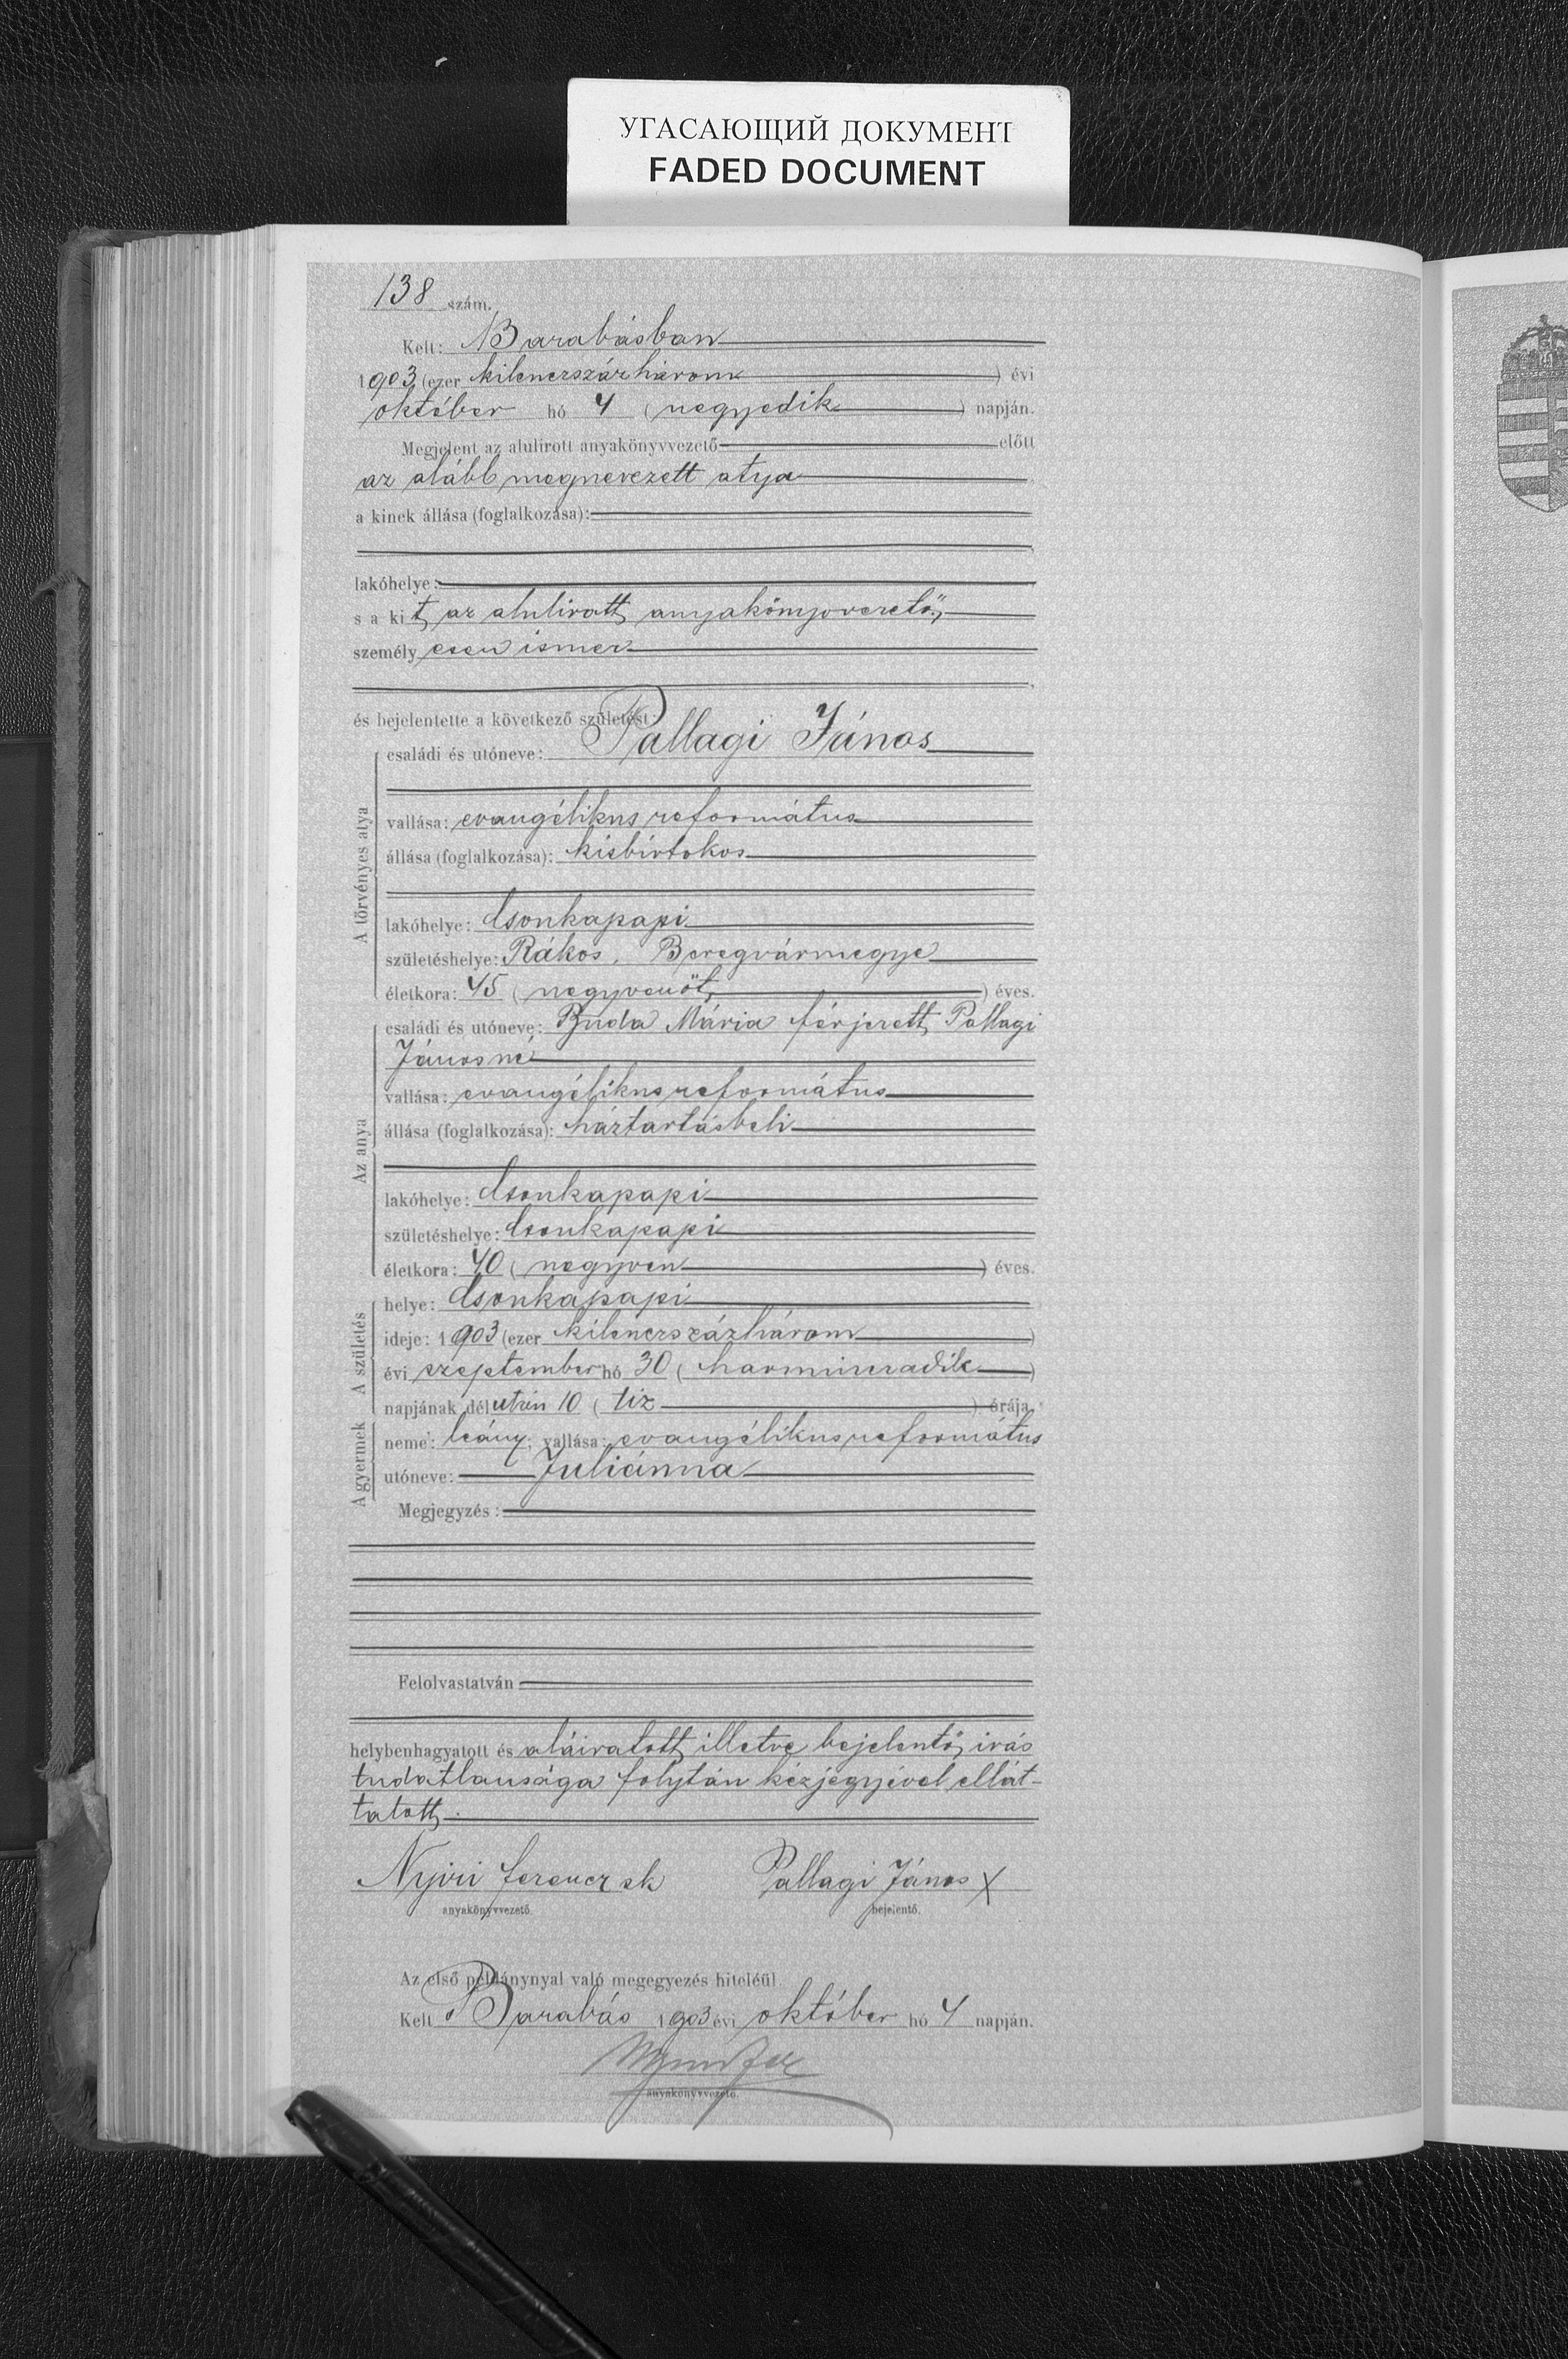 УГАСАЮЩИЙ ДОКУМЕНТ
FADED DOCUMENT
138 szám.
Kelt: Barabásban
1903 (ezer kilenczszázhárom) évi
október hó 4 (negyedik) napján.
Megjelent az alulirott anyakönyvvezető előtt
az alább megnevezett atya
a kinek állása (foglalkozása):
lakóhelye:
s a kit az alulirott anyakönyvvezető,
személyesen ismer
és bejelentette a következő születést:
A törvényes atya
családi és utóneve: Pallagi János
vallása: evangélikus református
állása (foglalkozása): kisbirtokos
lakóhelye: Csonkapapi
születéshelye: Rákos, Beregvármegye
életkora: 45 (negyvenöt) éves.
Az anya
családi és utóneve: Buda Mária férjezett Pallagi
Jánosné
vallása: evangélikus református
állása (foglalkozása): háztartásbeli
lakóhelye: Csonkapapi
születéshelye: Csonkapapi
életkora: 40 (negyven) éves.
A születés
helye: Csonkapapi
ideje: 1903 (ezer kilenczszázhárom)
évi szeptember hó 30 (harminczadik)
napjának délután 10 (tiz) órája.
A gyermek
neme: leány; vallása: evangélikus református
utóneve: Juliánna
Megjegyzés:
Felolvastatván
helybenhagyatott és aláiratott, illetve bejelentő irás
tudatlansága folytán kézjegyével ellát-
tatott.
Nyiri Ferencz sk Pallagi János X
anyakönyvvezető. bejelentő.
Az első példánynyal való megegyezés hiteléül.
Kelt Barabás 1903 évi október hó 4 napján.
anyakönyvvezető.